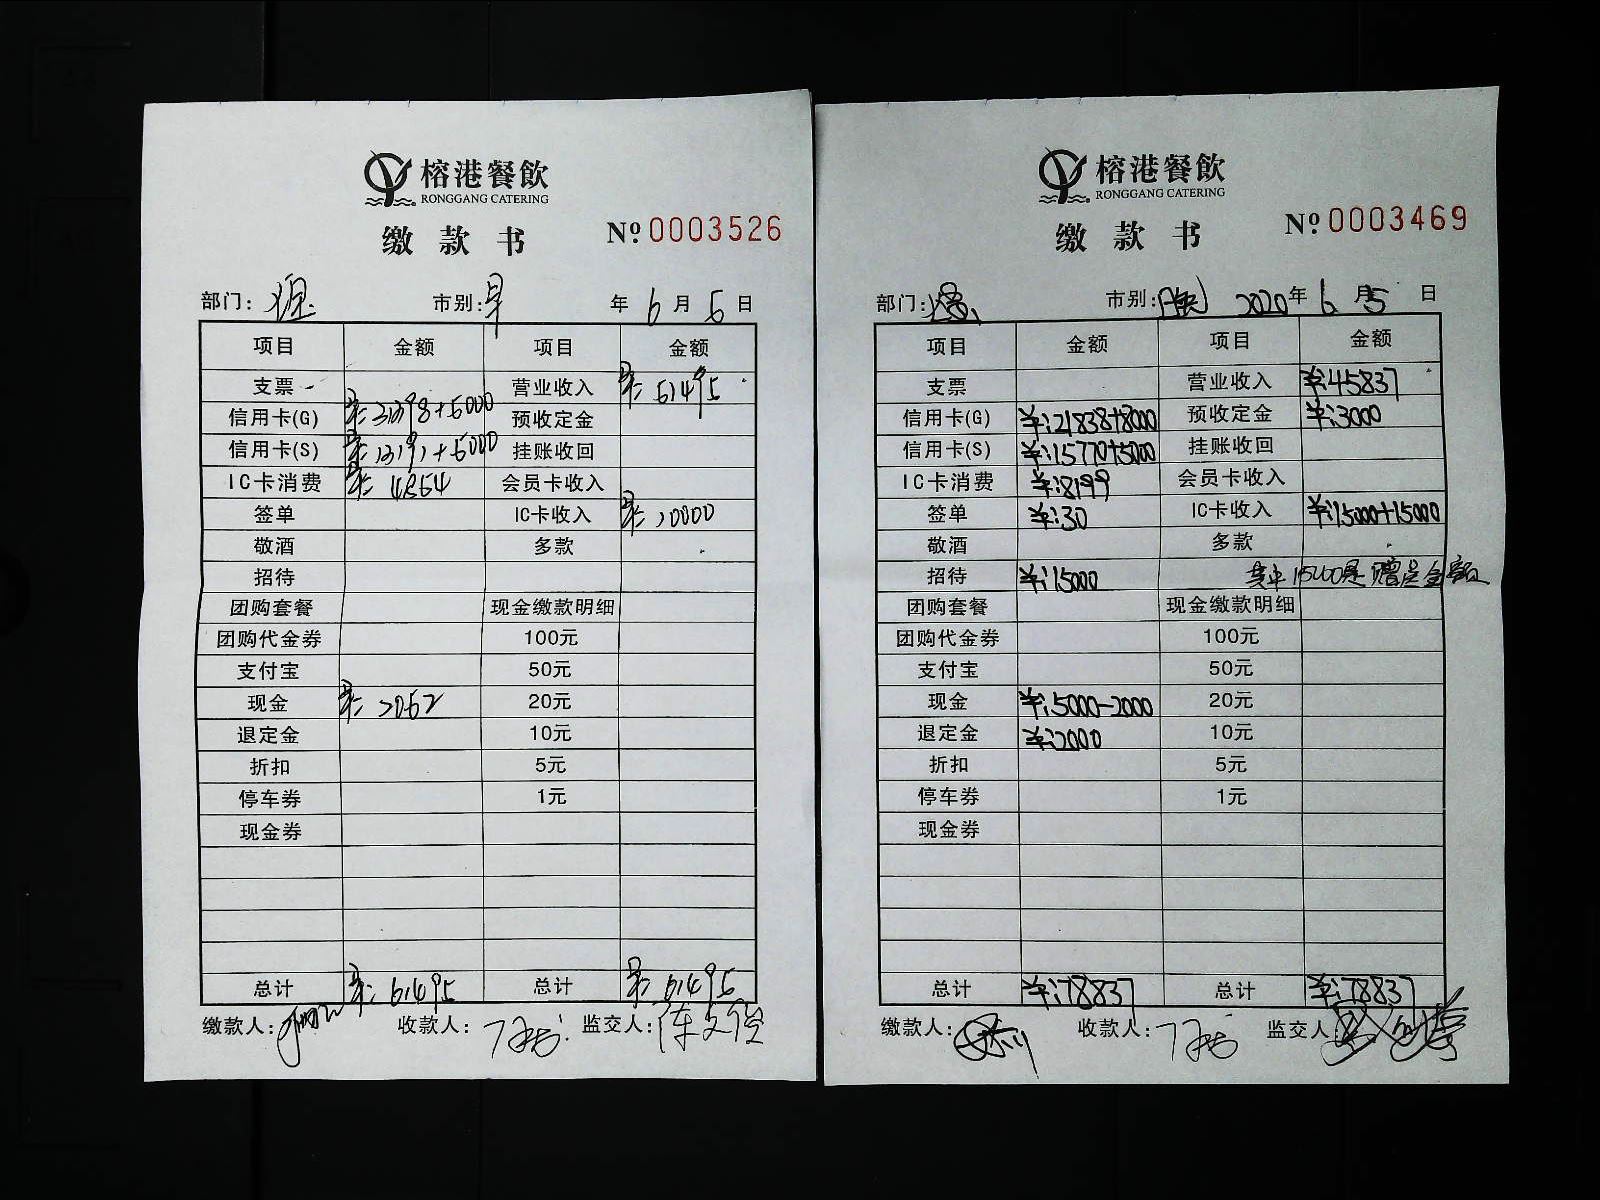 榕港餐飲
RONGGANG CATERING
缴款书
№ 0003526
部门: 市别:早 年 6 月 5 日
项目 金额 项目 金额
支票 营业收入
信用卡(G) 预收定金
信用卡(S) 挂账收回
IC卡消费 会员卡收入
签单 IC卡收入 10000
敬酒 多款
招待
团购套餐 现金缴款明细
团购代金券 100元
支付宝 50元
现金 20元
退定金 10元
折扣 5元
停车券 1元
现金券
总计 61495 总计 61495
缴款人: 收款人: 监交人:
榕港餐飲
RONGGANG CATERING
缴款书
№ 0003469
部门: 市别:晚 2020 年 6 月 5 日
项目 金额 项目 金额
支票 营业收入 ¥:45837
信用卡(G) ¥:21838+8000 预收定金 ¥:3000
信用卡(S) ¥:15770+5000 挂账收回
IC卡消费 ¥:8199 会员卡收入
签单 ¥:30 IC卡收入 ¥:15000+15000
敬酒 多款
招待 ¥:15000 其中15000是赠送金额
团购套餐 现金缴款明细
团购代金券 100元
支付宝 50元
现金 ¥:5000-2000 20元
退定金 ¥:2000 10元
折扣 5元
停车券 1元
现金券
总计 ¥:78837 总计 ¥:78837
缴款人: 收款人: 监交人: